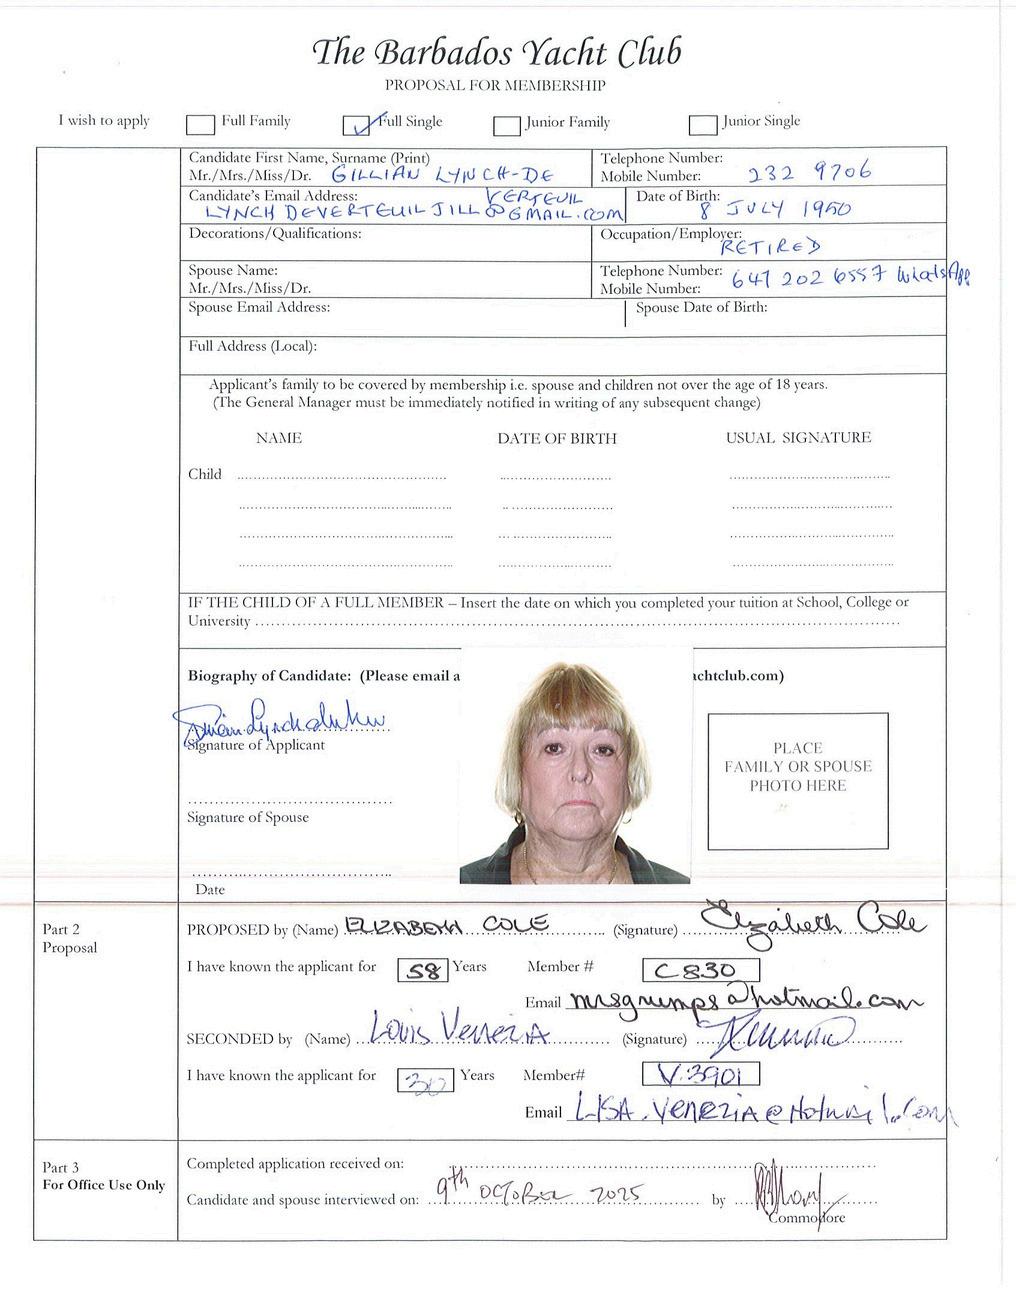 The Barbados Yacht Club
PROPOSAL FOR MEMBERSHIP
I wish to apply Full Family Full Single Junior Family Junior Single
Candidate First Name, Surname (Print)
Mr./Mrs./Miss/Dr. GILLIAN LYNCH-DE VERTEUIL
Telephone Number:
Mobile Number: 232 9706
Candidate's Email Address:
LYNCH DEVERTEUIL JILL@GMAIL.COM
Date of Birth:
8 JULY 1950
Decorations/Qualifications:
Occupation/Employer:
RETIRED
Spouse Name:
Mr./Mrs./Miss/Dr.
Telephone Number:
Mobile Number: 647 202 6557 WhatsApp
Spouse Email Address:
Spouse Date of Birth:
Full Address (Local):
Applicant's family to be covered by membership i.e. spouse and children not over the age of 18 years.
(The General Manager must be immediately notified in writing of any subsequent change)
NAME DATE OF BIRTH USUAL SIGNATURE
Child
IF THE CHILD OF A FULL MEMBER – Insert the date on which you completed your tuition at School, College or
University
Biography of Candidate: (Please email a
chtclub.com)
Signature of Applicant
PLACE
FAMILY OR SPOUSE
PHOTO HERE
Signature of Spouse
Date
Part 2
Proposal
PROPOSED by (Name) ELIZABETH COLE (Signature) Elizabeth Cole
I have known the applicant for 58 Years Member # C830
Email mrsgrumps@hotmail.com
SECONDED by (Name) Louis Venezia (Signature)
I have known the applicant for 30 Years Member# V.3901
Email LISA.VENEZIA@Hotmail.com
Part 3
For Office Use Only
Completed application received on:
Candidate and spouse interviewed on: 9th OCTOBER 2025 by
Commodore